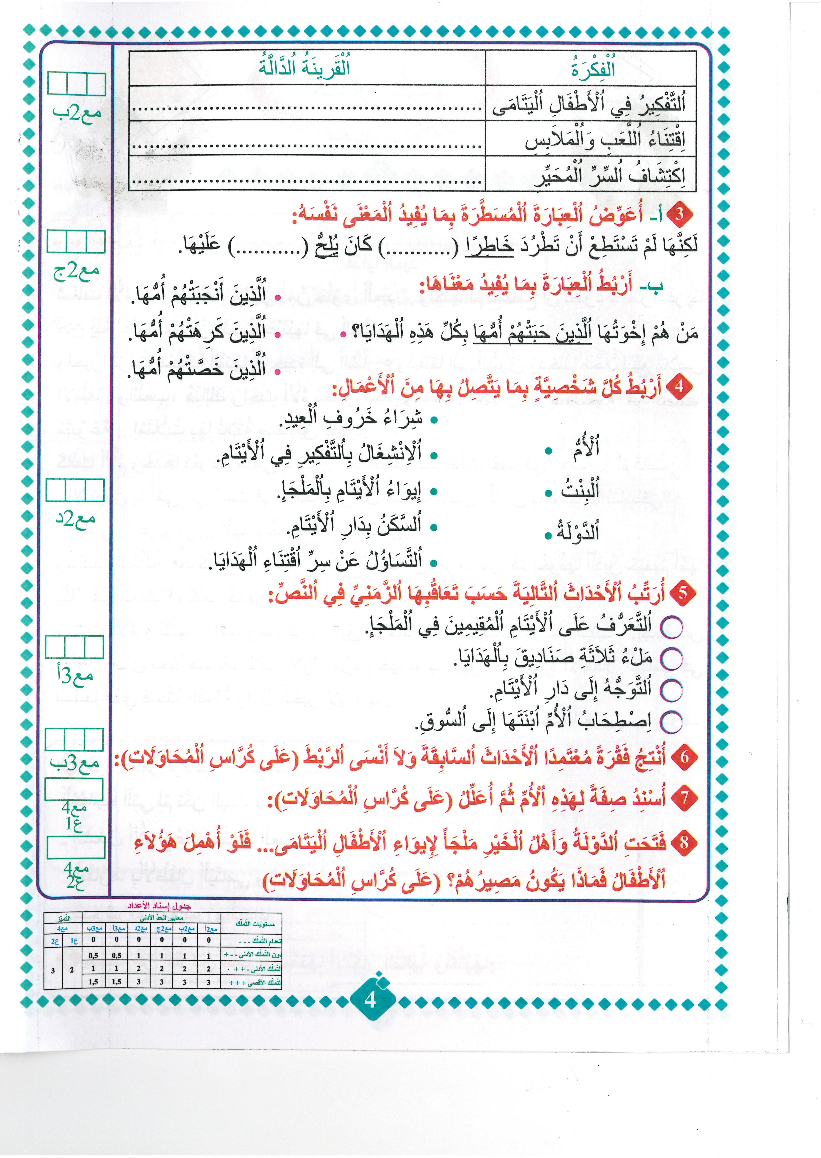 اُلْفِكْرَةُ اُلْقَرِينَةُ اُلدَّالَّةُ
اُلتَّفْكِيرُ فِي اُلْأَطْفَالِ اُلْيَتَامَى ........................................
اِقْتِنَاءُ اُللُّعَبِ وَاُلْمَلَابِسِ ........................................
اِكْتِشَافُ اُلسِّرِّ اُلْمُحَيِّرِ ........................................
مع2ب
3 أ- أُعَوِّضُ اُلْعِبَارَةَ اُلْمُسَطَّرَةَ بِمَا يُفِيدُ اُلْمَعْنَى نَفْسَهُ:
لَكِنَّهَا لَمْ تَسْتَطِعْ أَنْ تَطْرُدَ خَاطِرًا (..........) كَانَ يُلِحُّ (..........) عَلَيْهَا.
مع2ج
ب- أَرْبُطُ اُلْعِبَارَةَ بِمَا يُفِيدُ مَعْنَاهَا:
• اُلَّذِينَ أَنْجَبَتْهُمْ أُمُّهَا.
مَنْ هُمْ إِخْوَتُهَا اُلَّذِينَ حَبَتْهُمْ أُمُّهَا بِكُلِّ هَذِهِ اُلْهَدَايَا؟ • • اُلَّذِينَ كَرِهَتْهُمْ أُمُّهَا.
• اُلَّذِينَ خَصَّتْهُمْ أُمُّهَا.
4 أَرْبُطُ كُلَّ شَخْصِيَّةٍ بِمَا يَتَّصِلُ بِهَا مِنَ اُلْأَعْمَالِ:
• شِرَاءُ خَرُوفِ اُلْعِيدِ.
اُلْأُمُّ • • اُلْاِنْشِغَالُ بِاُلتَّفْكِيرِ فِي اُلْأَيْتَامِ.
اُلْبِنْتُ • • إِيوَاءُ اُلْأَيْتَامِ بِاُلْمَلْجَإِ.
اُلدَّوْلَةُ • • اُلسَّكَنُ بِدَارِ اُلْأَيْتَامِ.
• اُلتَّسَاؤُلُ عَنْ سِرِّ اُقْتِنَاءِ اُلْهَدَايَا.
مع2د
5 أُرَتِّبُ اُلْأَحْدَاثَ اُلتَّالِيَةَ حَسَبَ تَعَاقُبِهَا اُلزَّمَنِيِّ فِي اُلنَّصِّ:
اُلتَّعَرُّفُ عَلَى اُلْأَيْتَامِ اُلْمُقِيمِينَ فِي اُلْمَلْجَإِ.
مَلْءُ ثَلَاثَةِ صَنَادِيقَ بِاُلْهَدَايَا.
اُلتَّوَجُّهُ إِلَى دَارِ اُلْأَيْتَامِ.
اِصْطِحَابُ اُلْأُمِّ اُبْنَتَهَا إِلَى اُلسُّوقِ.
مع3أ
6 أُنْتِجُ فَقْرَةً مُعْتَمِدًا اُلْأَحْدَاثَ اُلسَّابِقَةَ وَلاَ أَنْسَى اُلرَّبْطَ (عَلَى كُرَّاسِ اُلْمُحَاوَلَاتِ):
مع3ب
7 أُسْنِدُ صِفَةً لِهَذِهِ اُلْأُمِّ ثُمَّ أُعَلِّلُ (عَلَى كُرَّاسِ اُلْمُحَاوَلَاتِ):
مع4
ع1
8 فَتَحَتِ اُلدَّوْلَةُ وَأَهْلُ اُلْخَيْرِ مَلْجَأً لِإِيوَاءِ اُلْأَطْفَالِ اُلْيَتَامَى... فَلَوْ أُهْمِلَ هَؤُلَاءِ
اُلْأَطْفَالُ فَمَاذَا يَكُونُ مَصِيرُهُمْ؟ (عَلَى كُرَّاسِ اُلْمُحَاوَلَاتِ)
مع4
ع2
جدول إسناد الأعداد
مستويات التملك معايير الحد الأدنى التميز
مع2أ مع2ب مع2ج مع2د مع3أ مع3ب مع4
انعدام التملك - - - 0 0 0 0 0 0 ع1 ع2
دون التملك الأدنى - - + 1 1 1 1 0,5 0,5
التملك الأدنى - + + 2 2 2 2 1 1 2 3
التملك الأقصى + + + 3 3 3 3 1,5 1,5
4